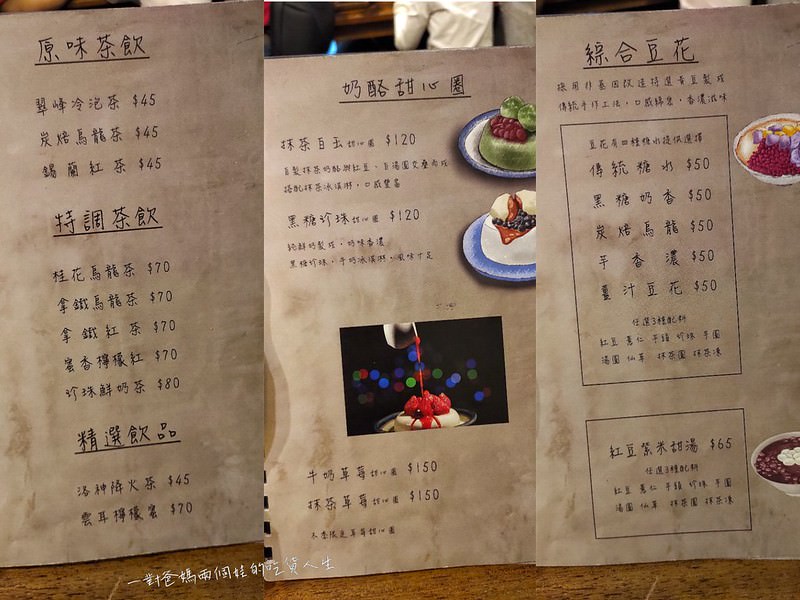 原味茶飲
翠峰冷泡茶 $45
炭焙烏龍茶 $45
錫蘭紅茶 $45
特調茶飲
桂花烏龍茶 $70
拿鐵烏龍茶 $70
拿鐵紅茶 $70
蜜香檸檬紅 $70
珍珠鮮奶茶 $80
精選飲品
洛神降火茶 $45
雲耳檸檬蜜 $70
奶酪甜心圈
抹茶白玉甜心圈 $120
自製抹茶奶酪與紅豆、白湯圓交疊而成
搭配抹茶冰淇淋,口感豐富
黑糖珍珠甜心圈 $120
純鮮奶製成,奶味香濃
黑糖珍珠,牛奶冰淇淋,風味十足
牛奶草莓甜心圈 $150
抹茶草莓甜心圈 $150
冬季限定草莓甜心圈
綜合豆花
採用非基因改造特選黃豆製成
傳統手作工法,口感綿密,香濃滋味
豆花有四種糖水提供選擇
傳統糖水 $50
黑糖奶香 $50
炭焙烏龍 $50
芋香濃 $50
薑汁豆花 $50
任選3種配料
紅豆 薏仁 芋頭 珍珠 芋圓
湯圓 仙草 抹茶圓 抹茶凍
紅豆紫米甜湯 $65
任選3種配料
紅豆 薏仁 芋頭 珍珠 芋圓
湯圓 仙草 抹茶圓 抹茶凍
一對爸媽兩個娃的吃貨人生